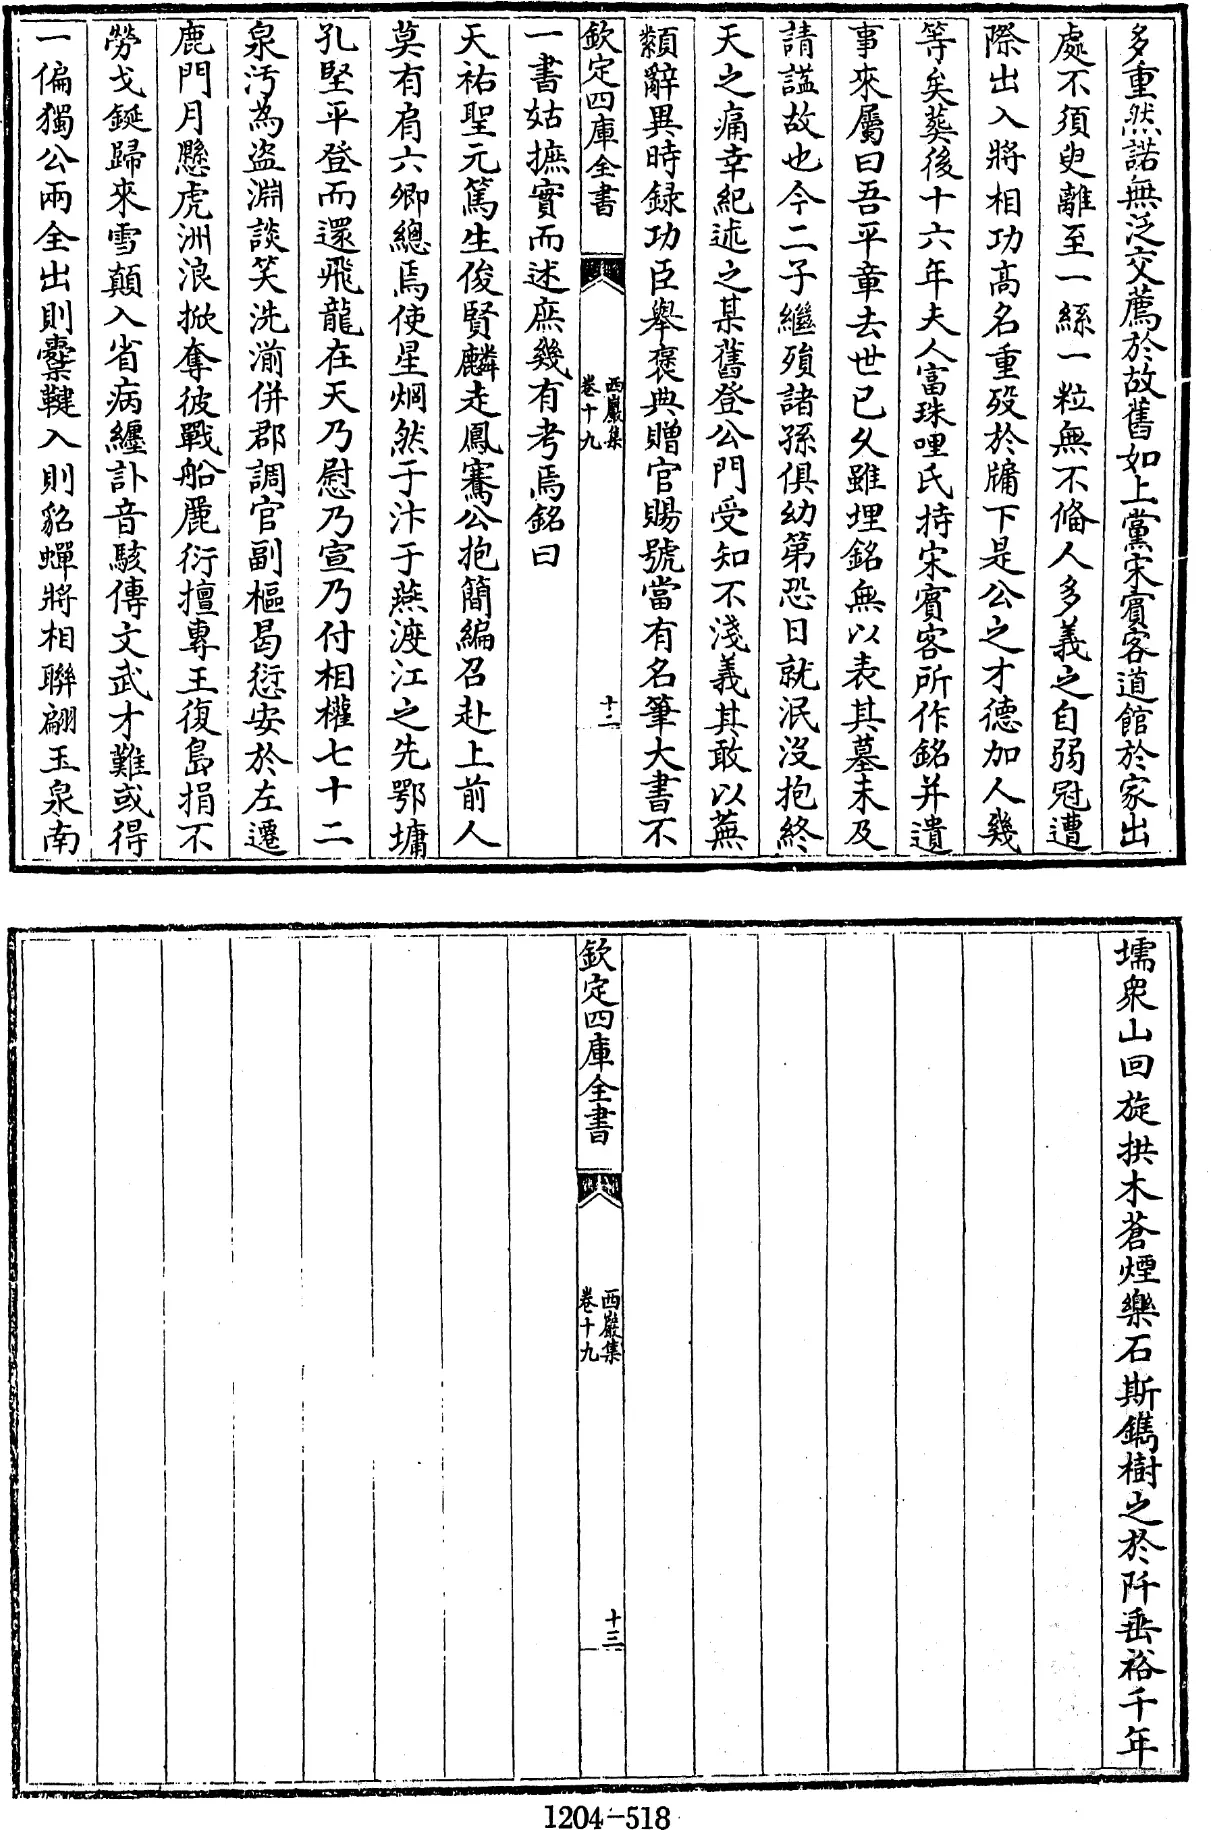 多重然諾無泛交薦於故舊如上黨宋賔客道館於家出
處不須臾離至一絲一粒無不偹人多義之自弱冠遭
際出入將相功髙名重殁於牖下是公之才德加人幾
等矣葬後十六年夫人富珠哩氏持宋賔客所作銘并遺
事來屬曰吾平章去世已久雖埋銘無以表其墓未及
請諡故也今二子繼殞諸孫俱幼第恐日就泯沒抱終
天之痛幸紀述之某舊登公門受知不淺義其敢以蕪
纇辭異時録功臣舉褒典贈官賜號當有名筆大書不
欽定四庫全書
西巖集
卷十九
十二
一書姑摭實而述庶幾有考焉銘曰
天祐聖元篤生俊賢麟走鳳騫公抱簡編召赴上前人
莫有肩六卿總焉使星烱然于汴于燕渡江之先鄂墉
孔堅平登而還飛龍在天乃慰乃宣乃付相權七十二
泉汚為盗淵談笑洗湔併郡調官副樞曷愆安於左遷
鹿門月懸虎洲浪掀奪彼戰船麗衍擅專王復島捐不
勞戈鋋歸來雪顛入省病纒訃音駭傳文武才難或得
一偏獨公兩全出則櫜鞬入則貂蟬將相聯翩玉泉南
壖衆山回旋拱木蒼煙樂石斯鐫樹之於阡垂裕千年
欽定四庫全書
西巖集
卷十九
十三
1204-518